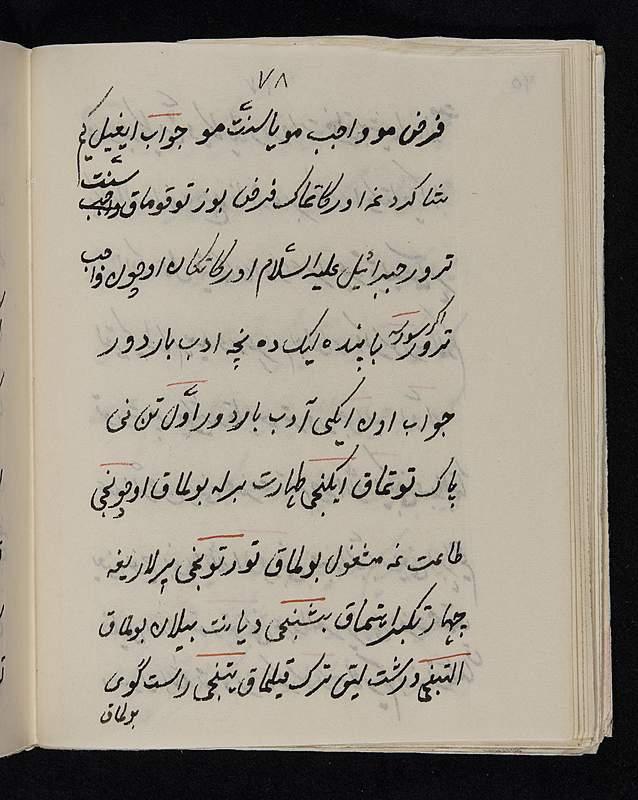 ٧٨
فرض مو واجب مو یا سنّت مو جواب ایغیل کیم
شاکردغه اورکاتماک فرض بوز توقوماق سنّت واجب
ترور جبرائیل علیه السّلام اورکاتکان اوچون واجب
ترور اکر سورسه باپنده لیک ده نچه ادب بار دور
جواب اون ایکی آدب بار دور اوّل تن نی
پاک توتماق ایکنجی طهارت برله بولماق اوچونجی
طاعت غه مشغول بولماق تورتونجی پیرلاریغه
چهار تکبیر ایتماق بشنجی دیانت بیلان بولماق
التینجی درشت لیق ترک قیلماق یتنجی راست گوی
بولماق